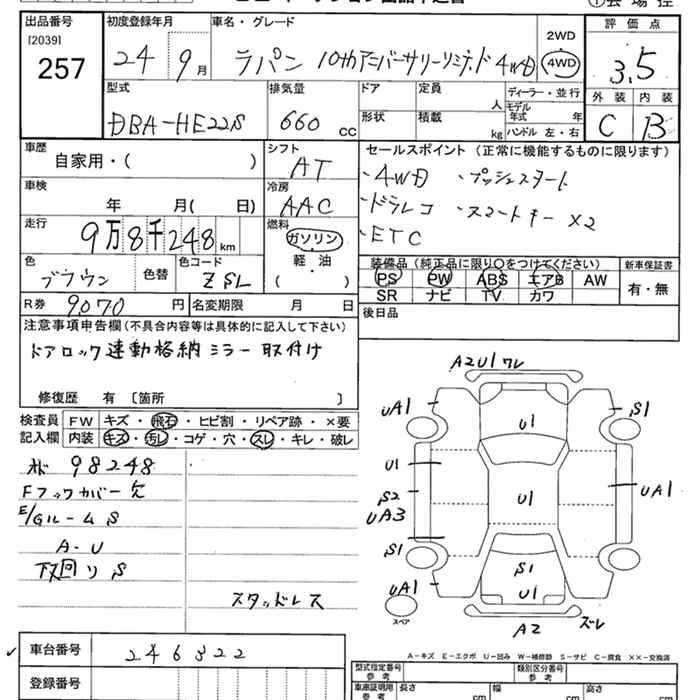 出品番号
[2039]
257
初度登録年月
24 9月
車名・グレード
ラパン 10thアニバーサリーリミテッド 4WD
2WD
4WD
評価点
3.5
外装 内装
C B
型式
DBA-HE22S
排気量
660 CC
ドア
定員
人
形状
積載
kg
ディーラー・並行
モデル
年式 年
ハンドル 左・右
車歴
自家用・( )
シフト
AT
車検
年 月( 日)
冷房
AAC
走行
9万8千248km
燃料
ガソリン
軽・油
( )
色
ブラウン
色替
色コード
ZSL
R券 9070 円
名変期限 月 日
セールスポイント (正常に機能するものに限ります)
・4WD ・プッシュスタート
・ドラレコ ・スマートキー×2
・ETC
装備品 (純正品に限り○をつけてください)
PS PW ABS エアB AW
SR ナビ TV カワ
新車保証書
有・無
後日品
注意事項申告欄(不具合内容等は具体的に記入して下さい)
ドアロック連動格納ミラー取付け
修復歴 有 〔箇所 〕
検査員
記入欄
FW キズ・飛石・ヒビ割・リペア跡・×要
内装 キズ・汚レ・コゲ・穴・スレ・キレ・破レ
98248
Fフックカバー欠
E/Gルーム S
A-U
下回り S
スタッドレス
A2U1 ワレ
UA1
S1
U1
U1
S2
UA3
U1
UA1
S1
S1
U1
UA1
スペア
A2
ズレ
A-キズ E-エクボ U-凹み W-補修跡 S-サビ C-腐食 ××-交換済
車台番号
246322
登録番号
型式指定番号
参考
類別区分番号
参考
車庫証明用
参考
長さ cm
幅 cm
高さ cm